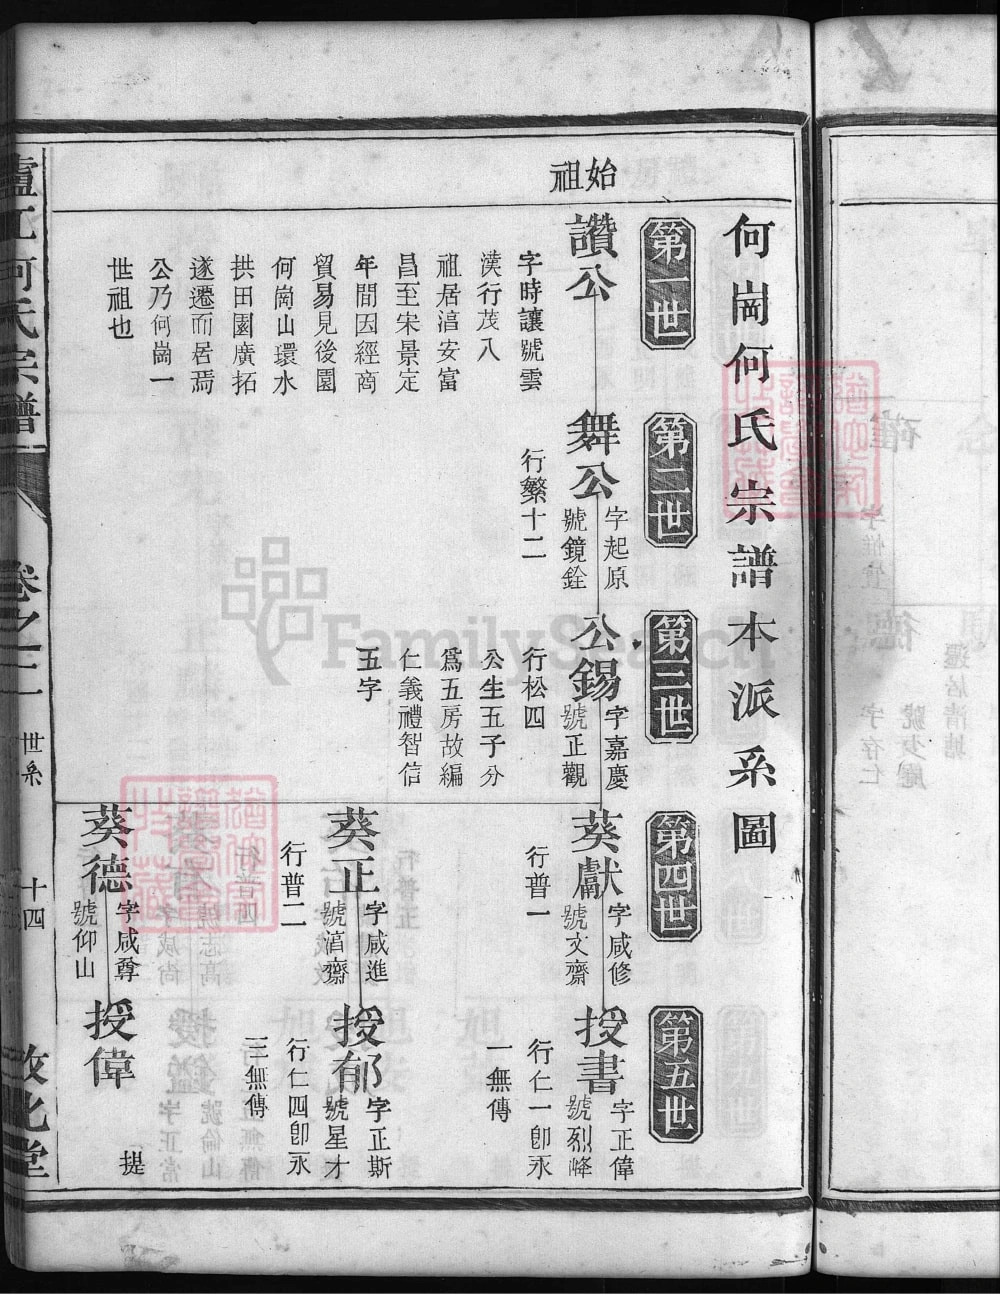 何崗何氏宗譜本派系圖
第一世
第二世
第三世
第四世
第五世
始祖
讚公
字時讓號雲
漢行茂八
祖居湻安富
昌至宋景定
年間因經商
貿易見後園
何崗山環水
拱田園廣拓
遂遷而居焉
公乃何崗一
世祖也
舞公
字起原
號鏡銓
行繁十二
公錫
字嘉慶
號正觀
行松四
公生五子分
爲五房故編
仁義禮智信
五字
葵獻
字咸修
號文齋
行普一
授書
字正偉
號烈峰
行仁一卽永
一無傳
葵正
字咸進
號湻齋
行普二
授郁
字正斯
號星才
行仁四卽永
三無傳
葵德
字咸尊
號仰山
授偉
提
廬江何氏宗譜
卷之二
世系
十四
敦化堂
FamilySearch